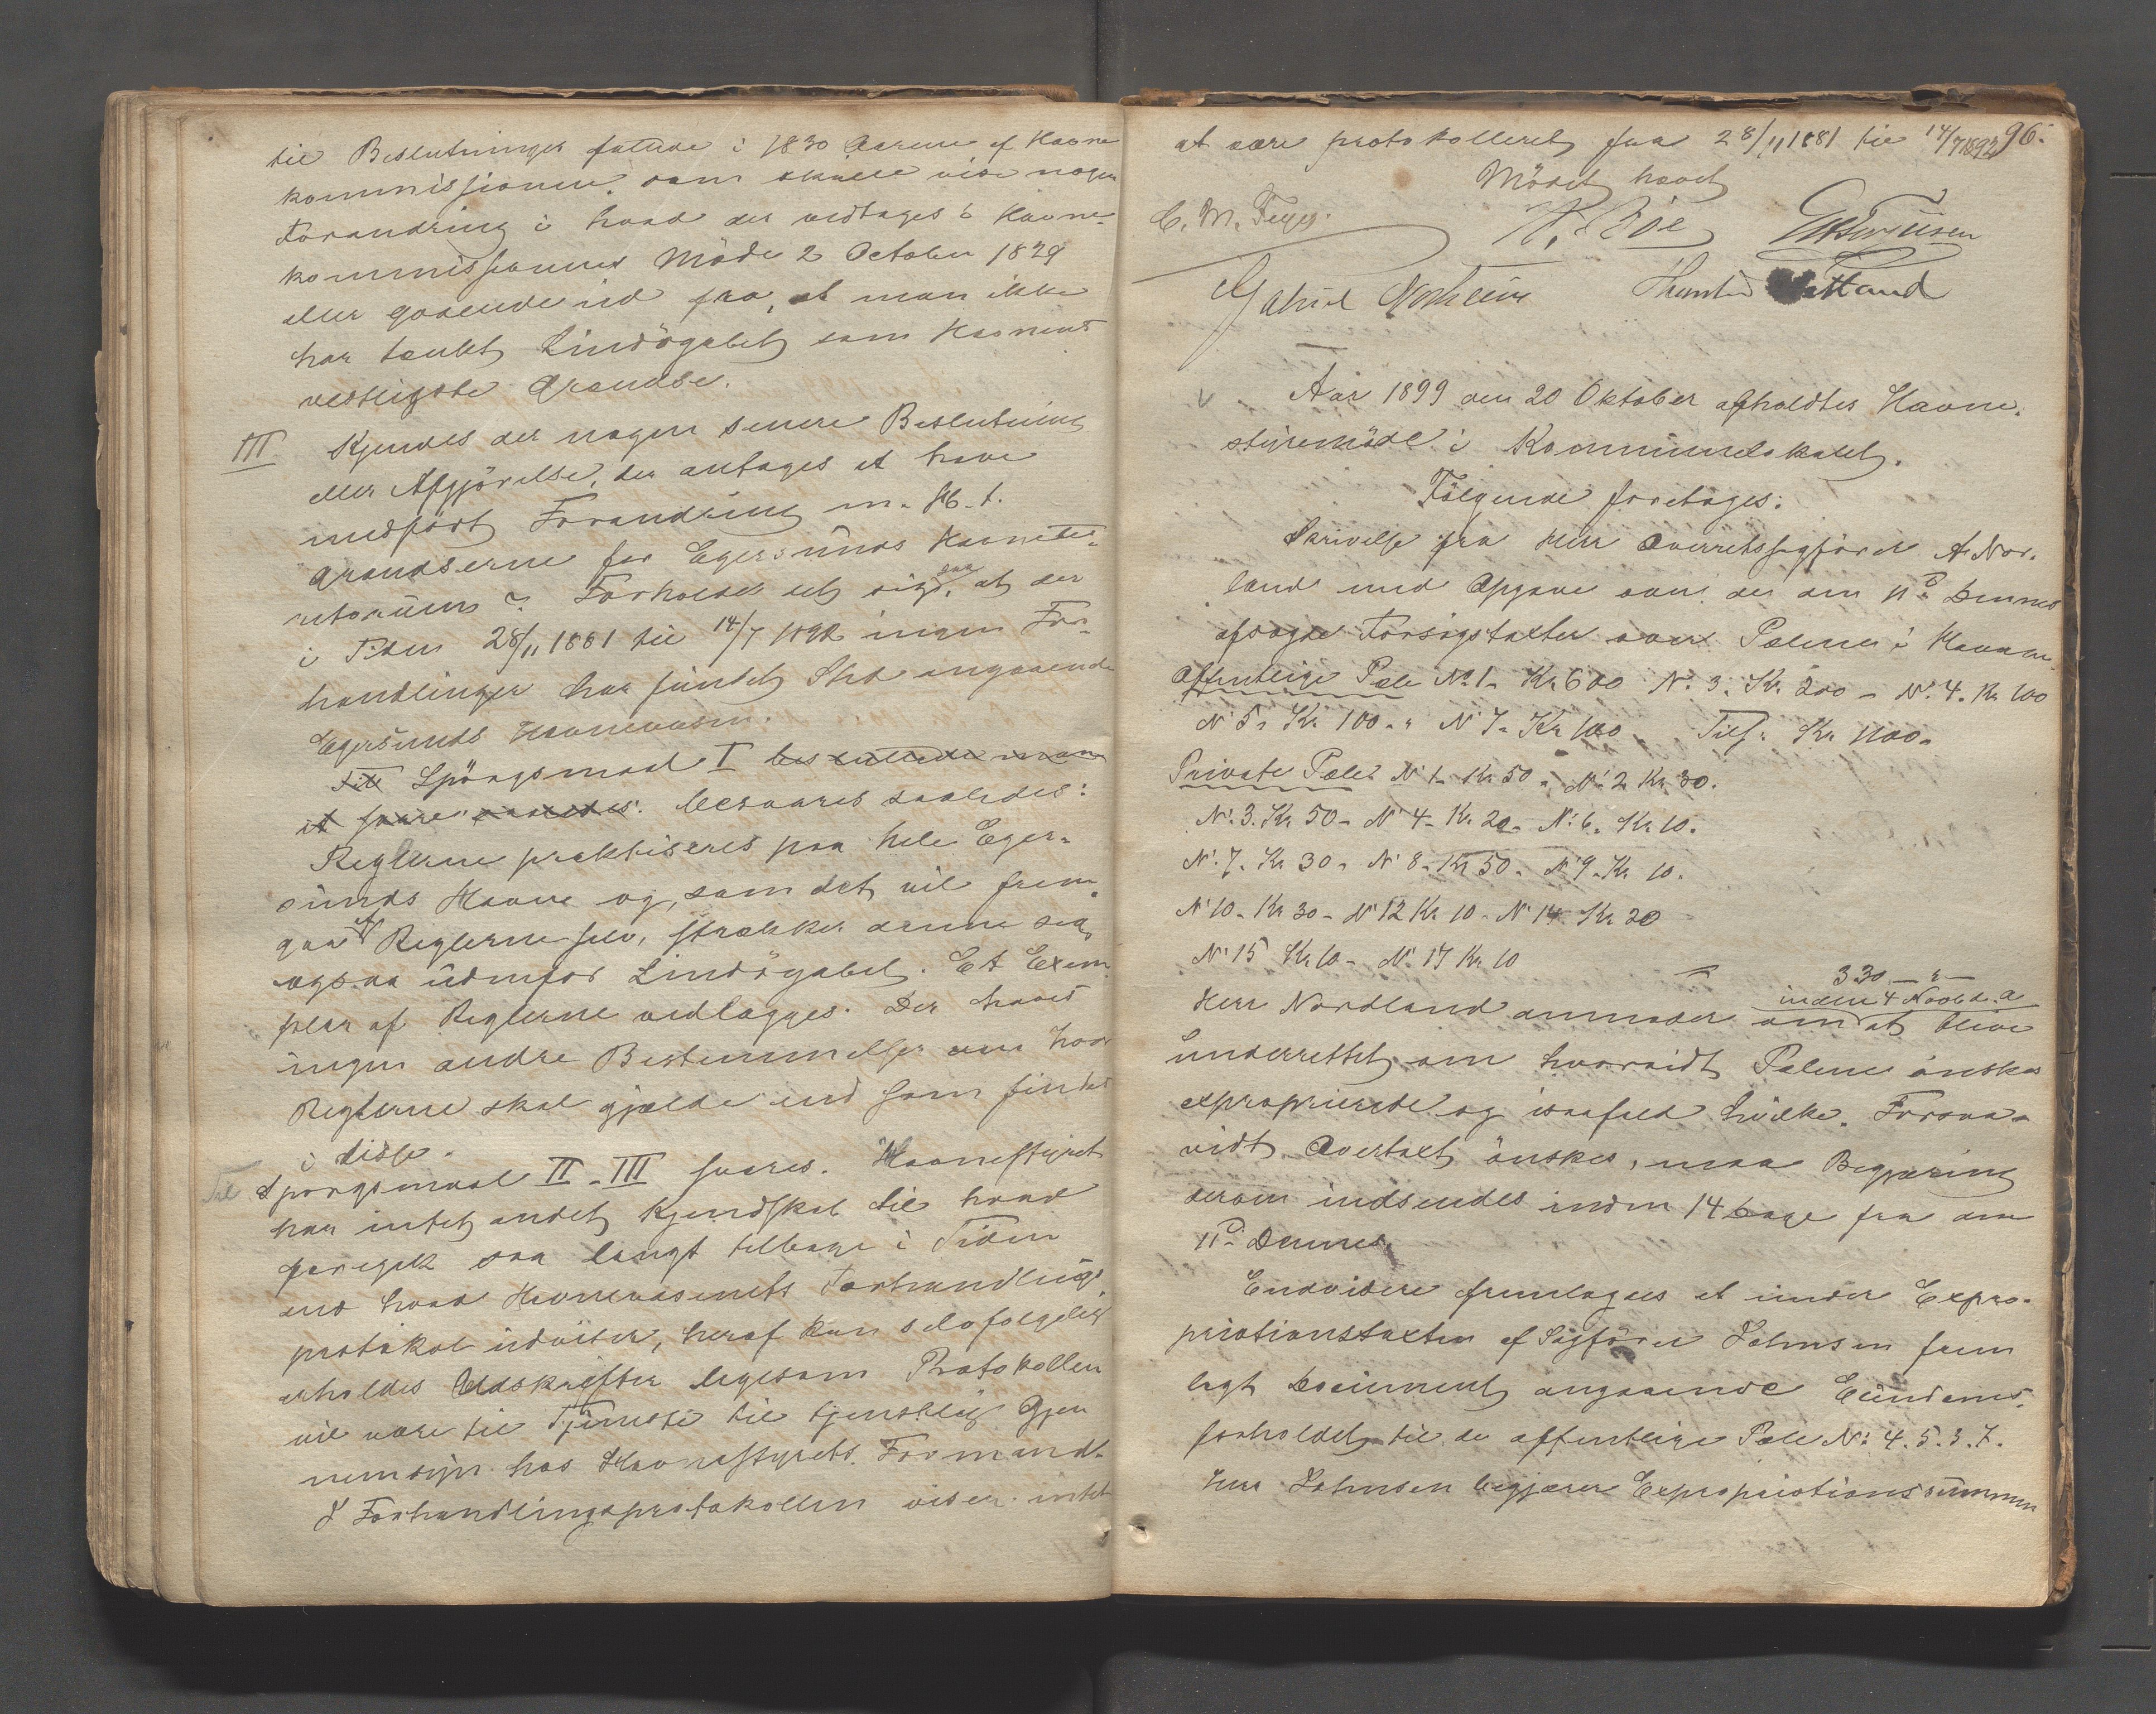 til Beslutninger fattede i 1830 Aarene af Havne
kommissionen, som skulle vise nogen
Forandring i hvad der vedtages i Havne-
kommissionens Möde 2 October 1829
eller gaaende ud fra, at man ikke
har tænkt Lindögabet som Havnens
vestligste Grændse.
III Kjendes der nogen senere Beslutning
eller Afgjörelse, der antages at have
medfört Forandring m. H. t.
Grændserne for Egersunds Havneter-
ritorium? Forholder det sig saa, at der
i Tiden 28/11 1881 til 14/7 1892 ingen For-
handlinger har fundet Sted angaaende
Egersunds Havnevæsen.
Til Spörgsmaal I besluttede man
at svare saaledes: besvares saaledes:
Reglerne praktiseres paa hele Eger-
sunds Havne og, som det vil frem-
gaa af Reglerne selv, strækker denne sig
ogsaa udenfor Lindögabet. Et Exem
plar af Reglerne vedlægges. Der haves
ingen andre Bestemmelser om hvor
Reglerne skal gjælde end som findes
i disse.
Til Spörgsmaal II - III svares. Havnestyret
har intet andet Kjendskab til hvad
foregik saa langt tilbage i Tiden
end hvad Havnevæsenets Forhandlings
protokol udviser, heraf kan selvfølgelig
erholdes Udskrifter ligesom Protokollen
vil være til Tjeneste til tjenstlig Gjen
nemsyn hos Havnestyrets Formand.
I Forhandlingsprotokollen viser intet
at være protokolleret fra 28/11 1881 til 14/7 1892 96.
Mödet hævet
C. M. Feyer. R. Böe
Gabriel
Aar 1899 den 20 Oktober afholdtes Havne-
styremöde i Kommunelokalet.
Fölgende foretages:
Skrivelse fra Herr Overretssagförer A. Nor-
land med Opgave over de den 11te Dennes
afsagte Forsigstakter over Pælene i Havnen.
Offentlige Pæle No. 1 - Kr. 600 No. 3. Kr. 200 - No. 4. Kr. 100
No 5. Kr 100 - " No 7 - Kr 100 Tils. Kr 1100.
Private Pæle: No 1 - Kr 50 - No 2 Kr. 30.
No. 3. Kr. 50 - No 4 - Kr. 20 - No. 6. Kr. 10.
No. 7. Kr. 30 - No 8 - Kr 50. No 9 - Kr. 10.
No 10 - Kr 30 - No 12 Kr 10 - No 14 Kr 20
No 15 Kr. 10 - No. 17 Kr 10
330 - " -
inden 4 Novbr. d. a
Herr Nordland anmoder om at blive
underrettet om hvorvidt Pælene önskes
exproprierede og isaafald hvilke. Forsaa-
vidt Overtakt önskes, maa Begjæring
derom indsendes inden 14 Dage fra den
11te Dennes.
Endvidere fremlagdes et under Expro-
priationstakten af Sagförer Johnsen frem
lagt Document angaaende Eiendoms-
forholdet til de offentlige Pæle No: 4. 5. 3. 7.
Herr Johnsen begjærer Expropriationssummen